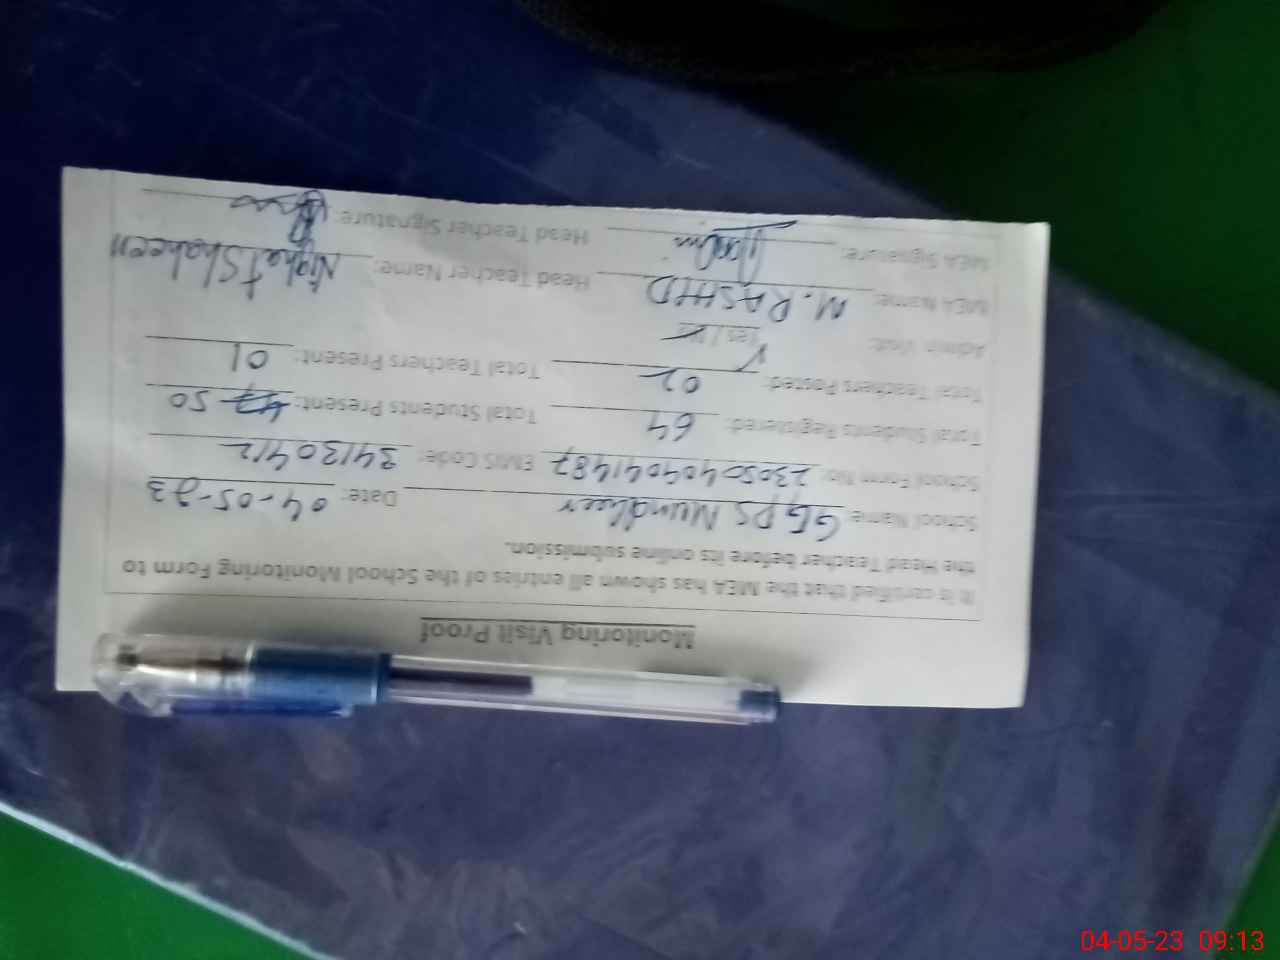 Monitoring Visit Proof
It is certified that the MEA has shown all entries of the School Monitoring Form to
the Head Teacher before its online submission.
School Name GGPS Mundheer Date: 04-05-23
School Form No: 230504041487 EMIS Code: 34130412
Total Students Registered: 64 Total Students Present: 47 50
Total Teachers Posted: 02 Total Teachers Present: 01
Admin Visit: Yes / No
MEA Name: M. RASHID Head Teacher Name: Nighat Shaheen
MEA Signature: Head Teacher Signature:
04-05-23 09:13